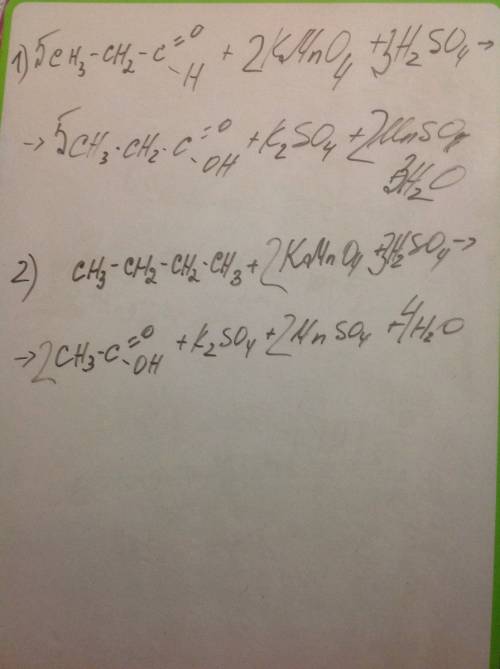 1) 5CH₃-CH₂-C=O-H + 2KMnO₄ + 3H₂SO₄ →
→ 5CH₃-CH₂-C=O-OH + K₂SO₄ + 2MnSO₄
+3H₂O
2) CH₃-CH₂-CH₂-CH₃ + 2KMnO₄ + 3H₂SO₄ →
→ 2CH₃-C=O-OH + K₂SO₄ + 2MnSO₄ + 4H₂O